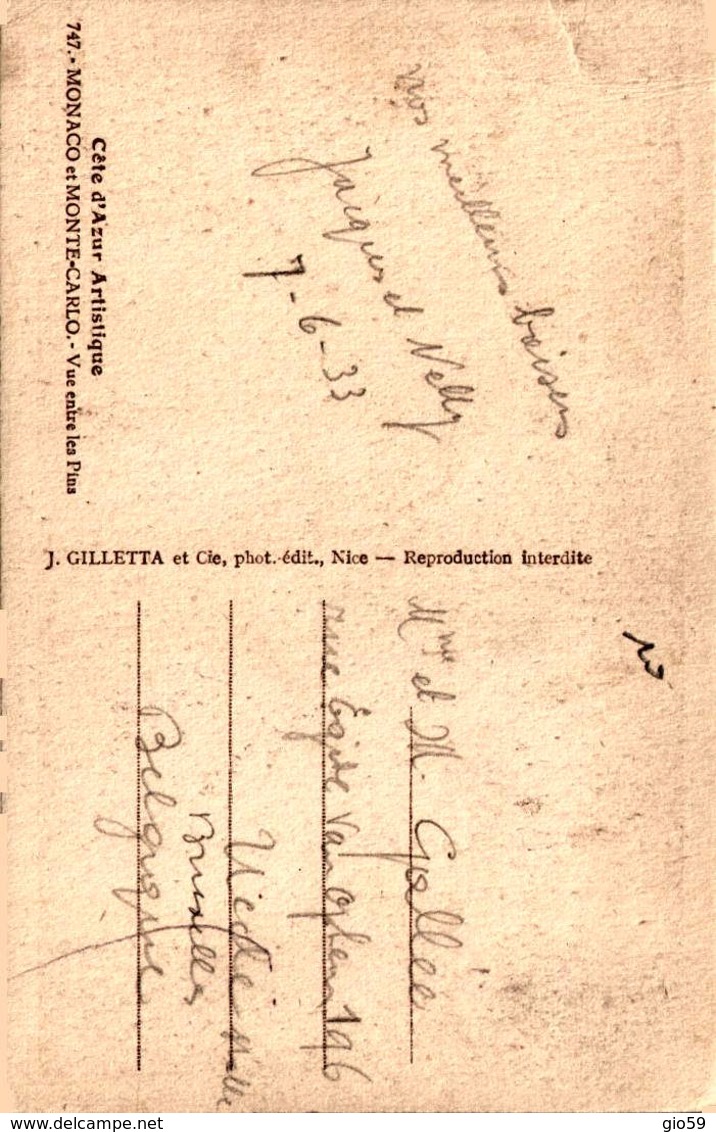 Côte d'Azur Artistique
747. - MONACO et MONTE-CARLO. - Vue entre les Pins
nos meilleurs baisers
Jacques et Nelly
7-6-33
J. GILLETTA et Cie, phot.-édit., Nice — Reproduction interdite
Mme et M. Gollée
rue Egide Van Ophem 196
Uccle
Bruxelles
Belgique
www.delcampe.net
gio59